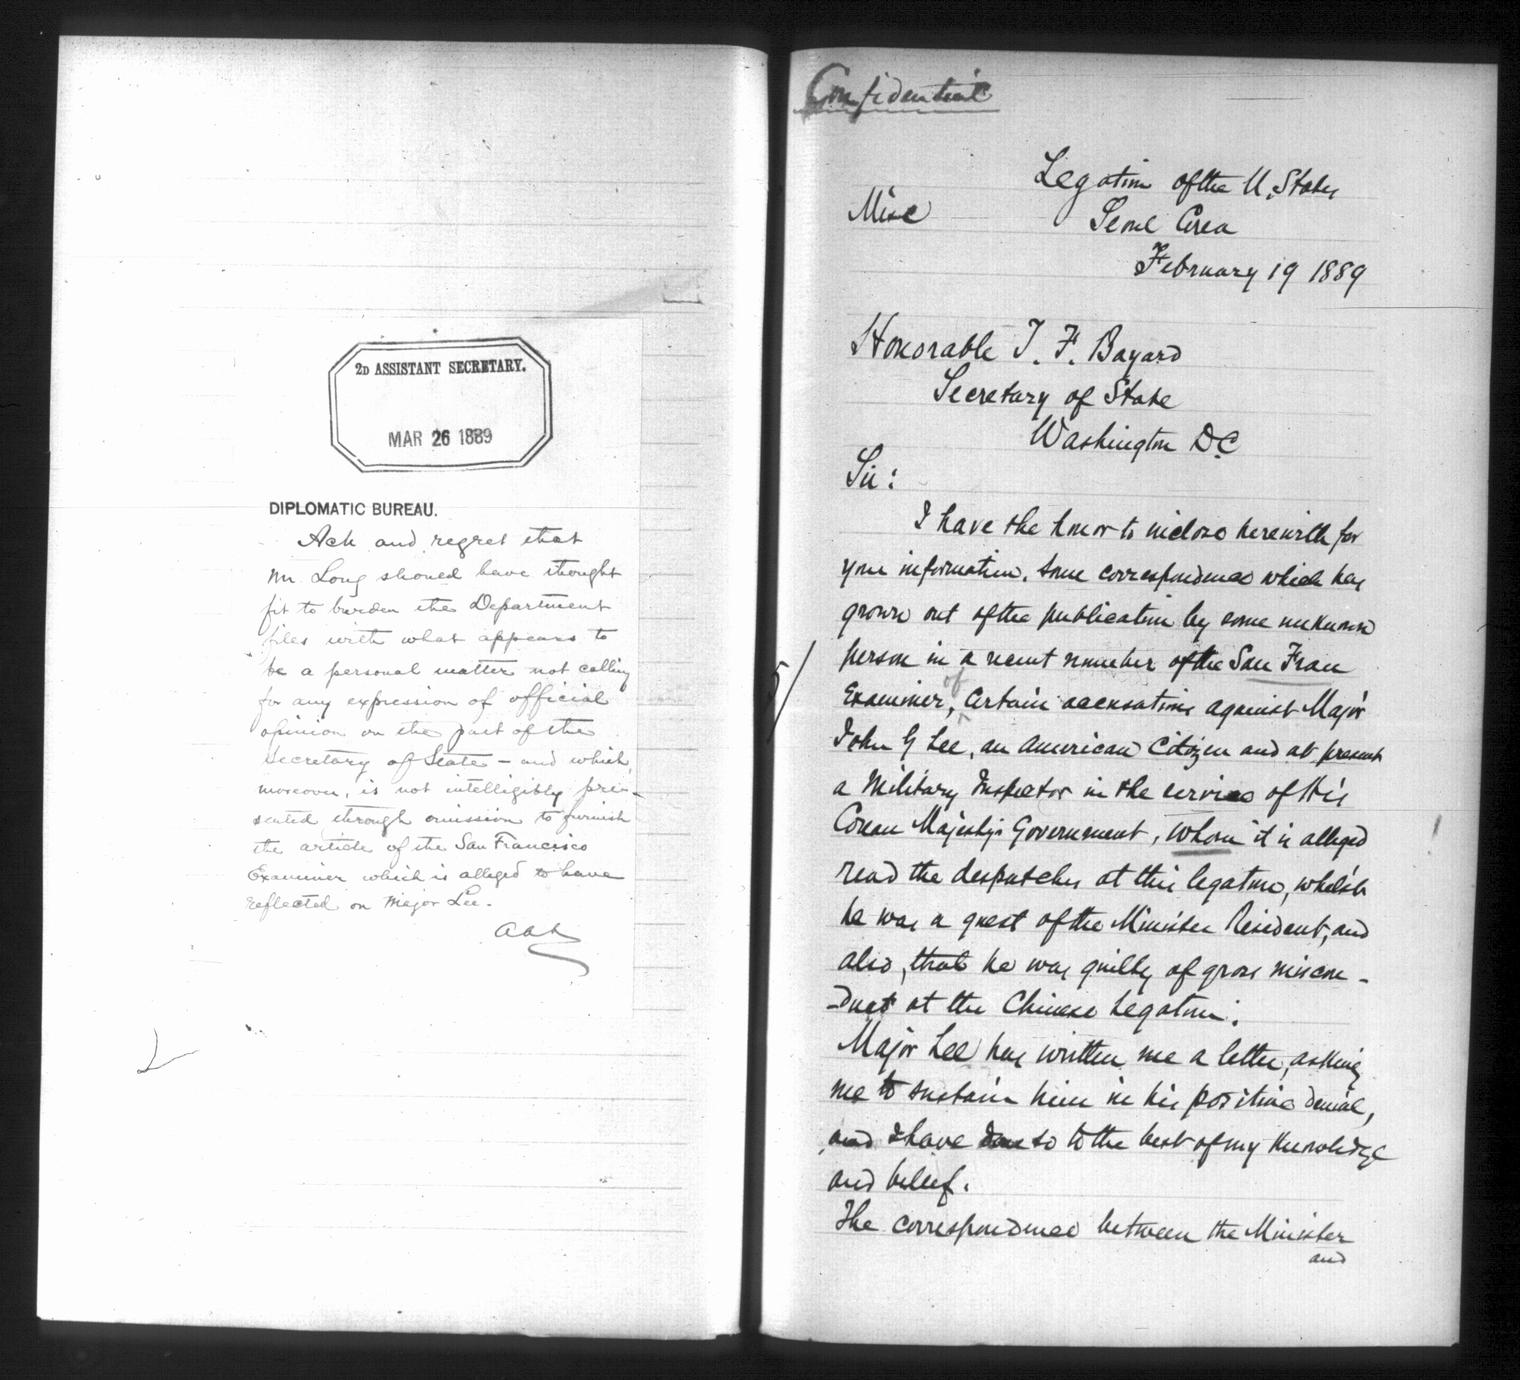 2D ASSISTANT SECRETARY.
MAR 26 1889
DIPLOMATIC BUREAU.
Ack and regret that
Mr. Long should have thought
fit to burden the Department
files with what appears to
be a personal matter not calling
for any expression of official
opinion on the part of the
Secretary of State – and which,
moreover, is not intelligibly pre-
sented through omission to furnish
the article of the San Francisco
Examiner which is alleged to have
reflected on Major Lee.
AAA
Confidential
Legation of the U. States
Misc
Seoul Corea
February 19 1889
Honorable T. F. Bayard
Secretary of State
Washington D.C
Sir:
I have the honor to inclose herewith for
your information, some correspondence which has
grown out of the publication by some unknown
person in a recent number of the San Fran
Examiner, of certain accusations against Major
John G Lee, an American Citizen and at present
a Military Inspector in the service of His
Corean Majesty's Government, whom it is alleged
read the despatches at this legation, whilst
he was a guest of the Minister Resident, and
also, that he was guilty of gross miscon-
-duct at the Chinese Legation.
Major Lee has written me a letter, asking
me to sustain him in his positive denial,
and I have done so to the best of my knowledge
and belief.
The correspondence between the Minister
and